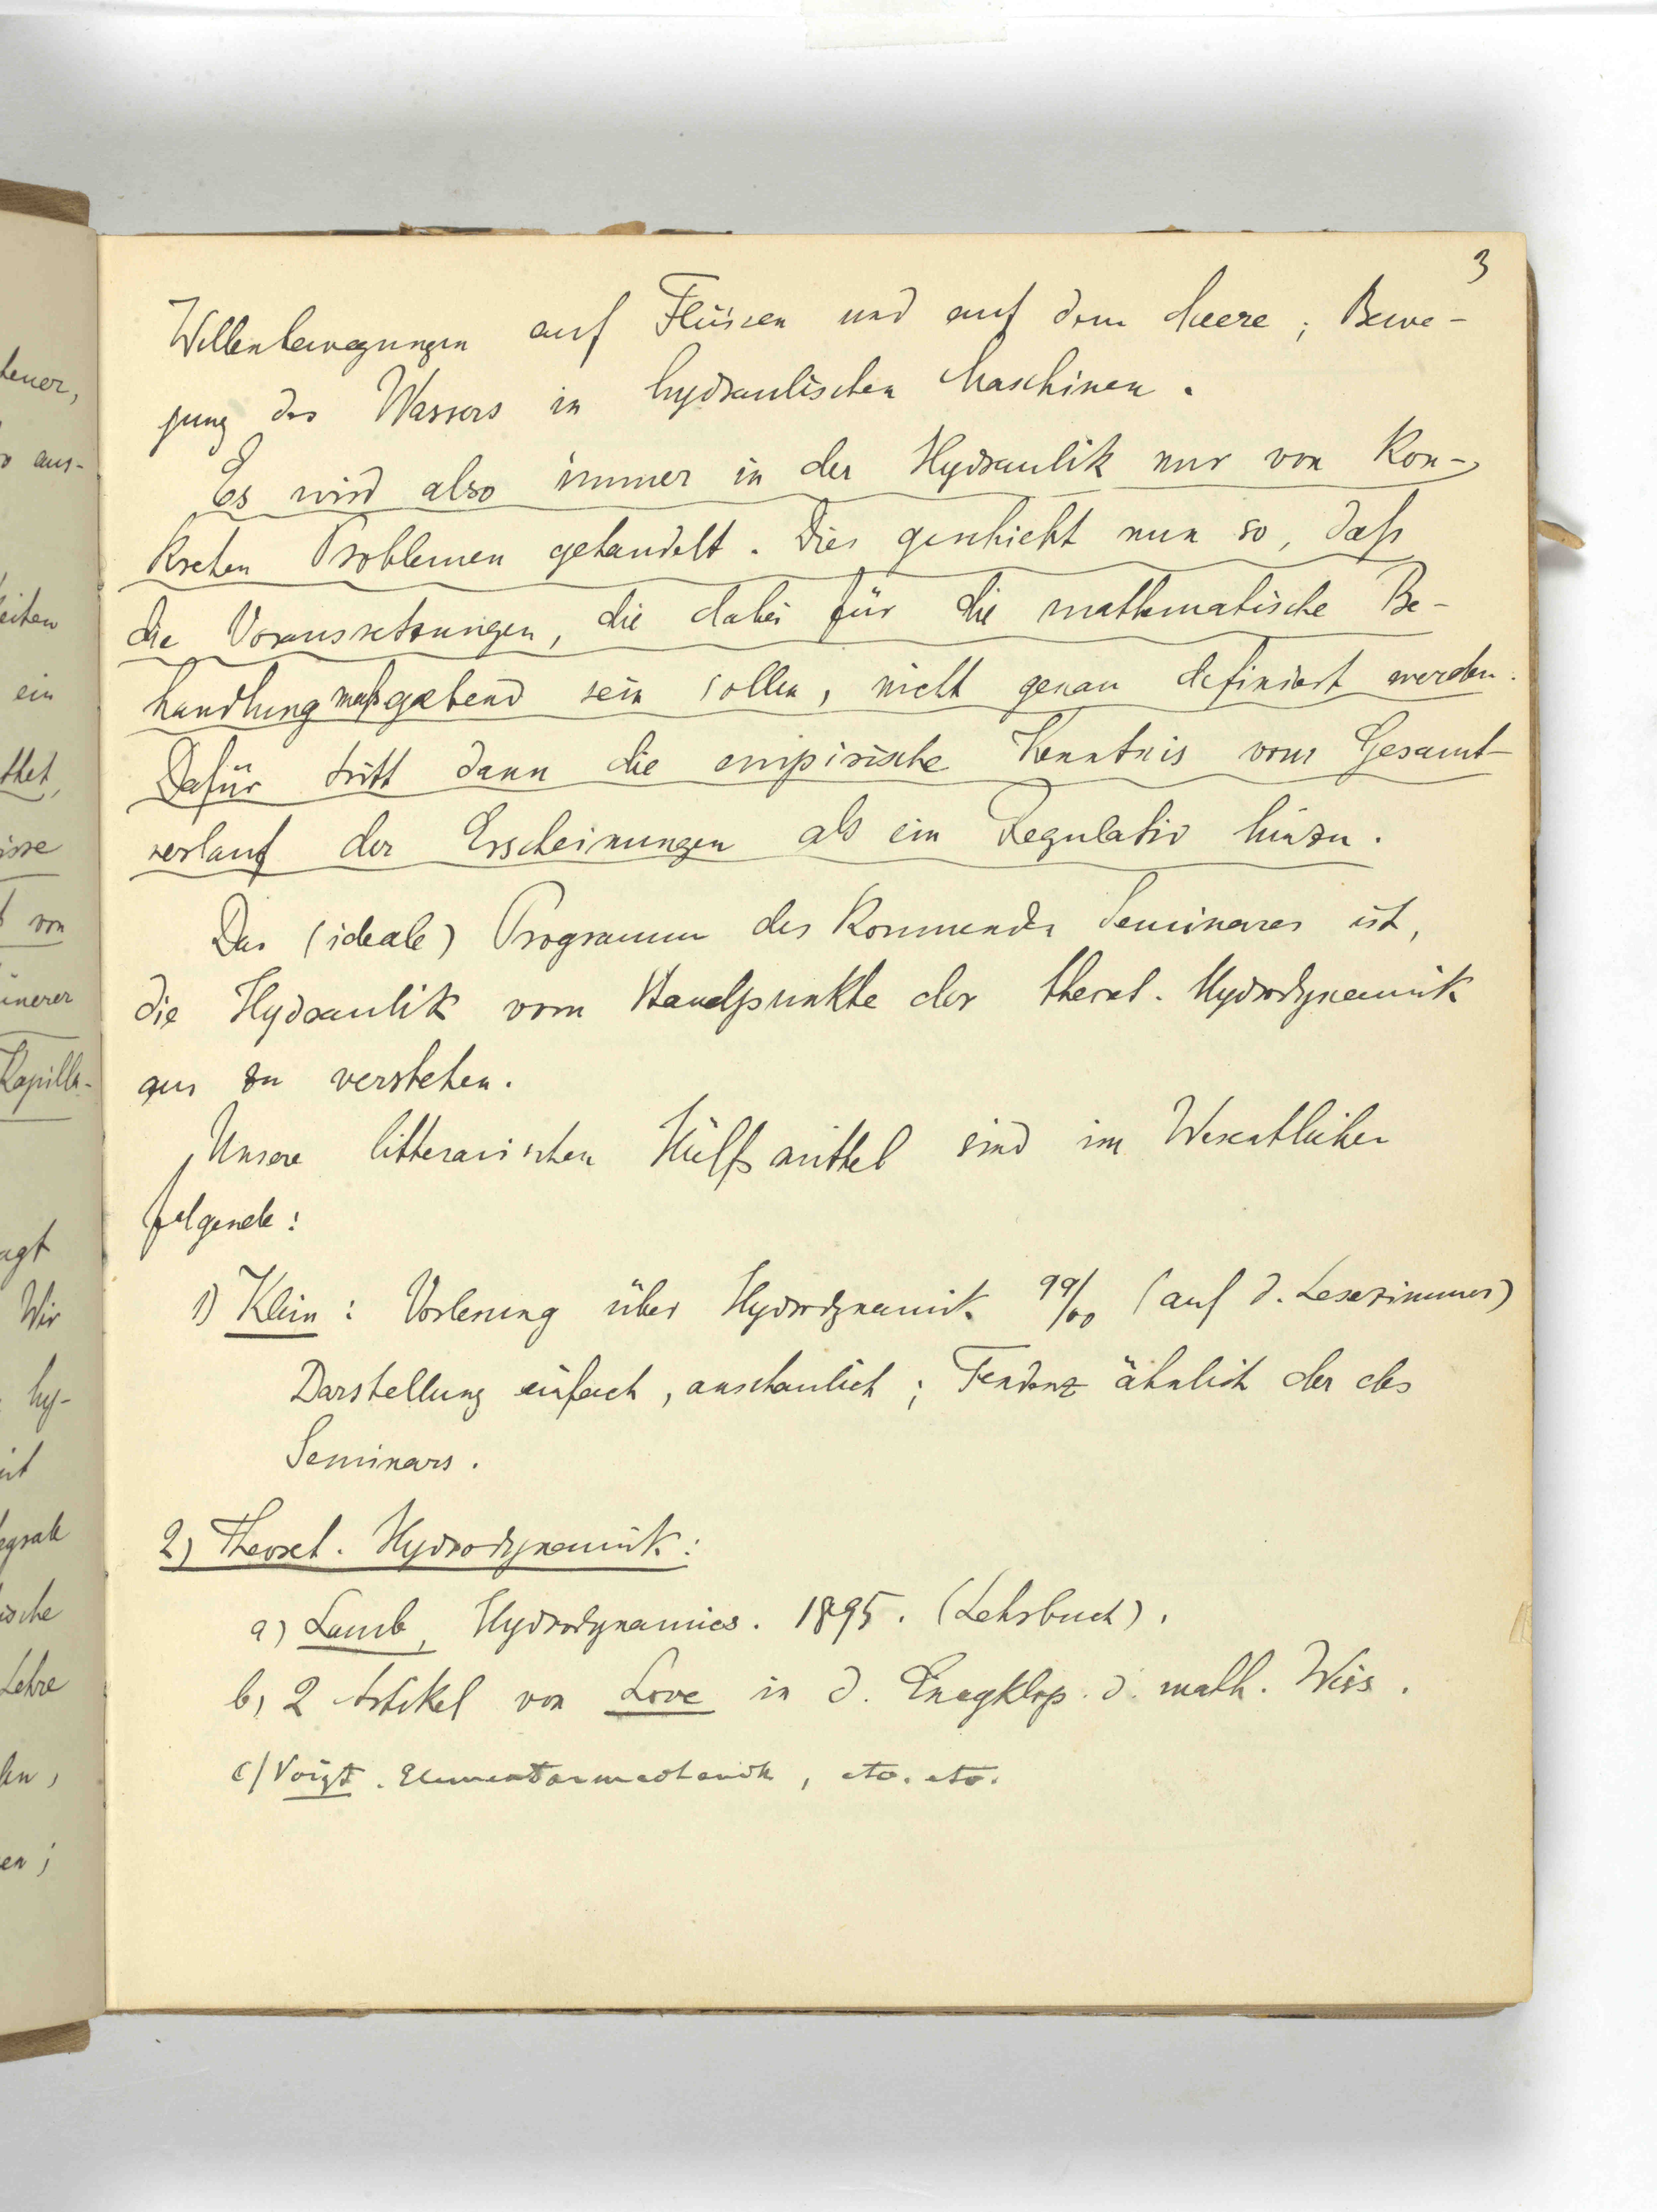 3
Wellenbewegungen auf Flüssen und auf dem Meere; Bewe-
gung des Wassers in hydraulischen Maschinen.
Es wird also immer in der Hydraulik nur von Kon-
kreten Problemen gehandelt. Dies geschieht nun so, daß
die Voraussetzungen, die dabei für die mathematische Be-
handlung maßgebend sein sollen, nicht genau definiert werden.
Dafür tritt dann die empirische Kenntnis vom Gesamt-
verlauf der Erscheinungen als ein Regulativ hinzu.
Das (ideale) Programm des kommenden Seminares ist,
die Hydraulik vom Standpunkte der theoret. Hydrodynamik
aus zu verstehen.
Unsere litterarischen Hülfsmittel sind im Wesentlichen
folgende:
1) Klein: Vorlesung über Hydrodynamik 99/00 (auf d. Lesezimmer)
Darstellung einfach, anschaulich; Tendenz ähnlich der des
Seminars.
2) Theoret. Hydrodynamik:
a) Lamb, Hydrodynamics. 1895. (Lehrbuch).
b) 2 Artikel von Love in d. Encyklop. d. math. Wiss.
c) Voigt. Elementarmechanik, etc. etc.
tener,
aus-
eiten
ein
ttet,
isse
von
inerer
Kapilla-
agt
Wir
hy-
mit
egrale
ische
Lehre
len,
en;